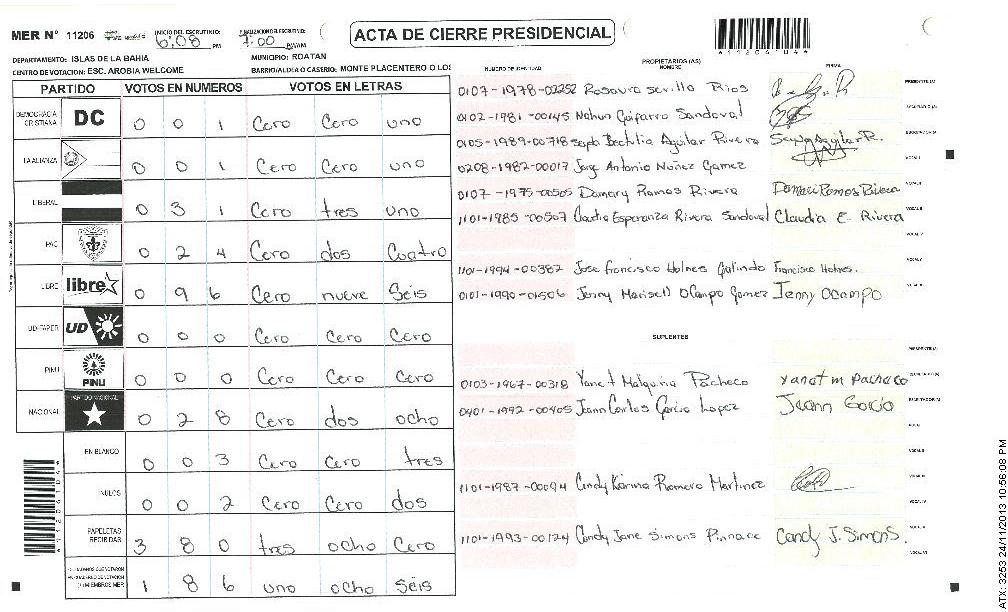 MER N° 11206
INICIO DEL ESCRUTINIO: 6:08 PM
FINALIZACION DEL ESCRUTINIO: 7:00
ACTA DE CIERRE PRESIDENCIAL
DEPARTAMENTO: ISLAS DE LA BAHIA
MUNICIPIO: ROATAN
CENTRO DE VOTACION: ESC. AROBIA WELCOME
BARRIO/ALDEA O CASERIO: MONTE PLACENTERO O LOS
PARTIDO VOTOS EN NUMEROS VOTOS EN LETRAS
DEMOCRACIA CRISTIANA DC 0 0 1 Cero Cero uno
LA ALIANZA 0 0 1 Cero Cero uno
LIBERAL 0 3 1 Cero tres uno
PAC 0 2 4 Cero dos Cuatro
LIBRE libre 0 9 6 Cero nueve Seis
UD-FAPER UD 0 0 0 Cero Cero Cero
PINU PINU 0 0 0 Cero Cero Cero
NACIONAL PARTIDO NACIONAL 0 2 8 Cero dos ocho
EN BLANCO 0 0 3 Cero Cero tres
NULOS 0 0 2 Cero Cero dos
PAPELETAS RECIBIDAS 3 8 0 tres ocho Cero
1 8 6 uno ocho Seis
PROPIETARIOS (AS)
NUMERO DE IDENTIDAD NOMBRE FIRMA
0107-1978-02252 Rosaura Sevilla Rios
0102-1981-00145 Nahun Guifarro Sandoval
0105-1989-00718 Bechtlia Aguilar Rivera
0208-1982-00017 Jorge Antonio Nuñez Gamez
0107-1975-00505 Damary Ramos Rivera Damari Ramos Rivera
1101-1985-00507 Claudia Esperanza Rivera Sandoval Claudia E. Rivera
1101-1994-00387 Jose Francisco Holnes Galindo Francisco Holnes.
0101-1990-01506 Jenny Marisell Ocampo Gomez Jenny Ocampo
SUPLENTES
0103-1967-00318 Yanet Pacheco Yanet m Pacheco
0401-1992-00405 Jeann Carlos Garcia Lopez Jeann Garcia
1101-1987-00094 Cindy Karina Romero Martinez
1101-1993-00124 Candy Jane Simons Pinnace Candy J. Simons.
ATX: 3253 24/11/2013 10:56:08 PM